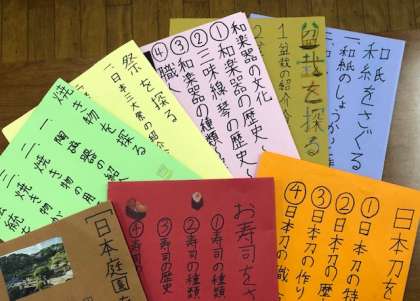 和紙
和紙をさぐる
一、和紙のしょうかい
盆栽を探る
1 盆栽の紹介
和楽器の文化
①和楽器の歴史
②三味線琴の歴史
③和楽器の種類
④職人
祭を探る
一、日本三大祭の紹介
焼き物を探る
一、陶磁器の紹介
二、焼き物の
三、焼き物の用
伝統
日本刀を
①日本刀の特
②日本刀の歴
③日本刀の作り
④日本刀の職
お寿司をさ
①寿司の種類
②寿司の種類
③寿司の歴史
④寿司
「日本庭園を